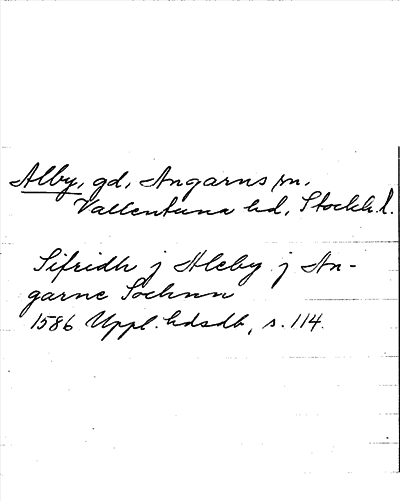 Alby, gd, Angarns sn,
Vallentuna hd, Stockh. l.
Sifridh j Aleby j An-
garne Sochnn
1586 Uppl. hdsdb, s. 114.